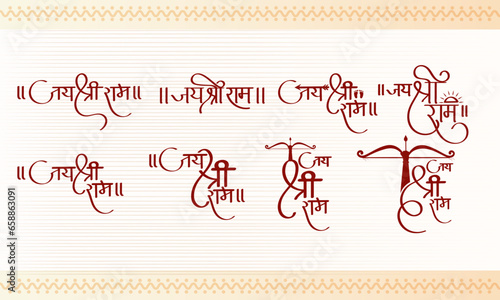 ॥ जय श्री राम ॥ ॥ जय श्री राम ॥ जय श्री राम ॥ ॥ जय श्री राम ॥
॥ जय श्री राम ॥ ॥ जय श्री राम ॥ जय श्री राम जय श्री राम
Adobe Stock | #658863091